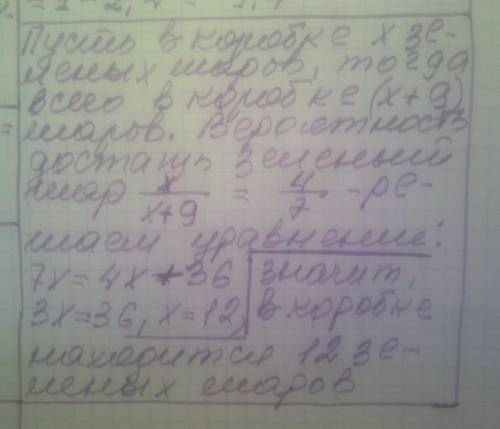 Пусть в коробке x зе-
леных шаров, тогда
всего в коробке (x+9)
шаров. Вероятность
достать зеленый
шар x/(x+9) = 4/7 - ре-
шаем уравнение:
7x=4x+36 значит,
3x=36, x=12 в коробке
находится 12 зе-
леных шаров